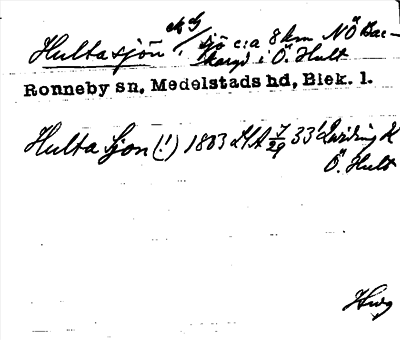 Hultasjön sjö c:a 8 km NÖ Bac-
kargd i Ö. Hult
Ronneby sn, Medelstads hd, Blek. l.
Hulta Sjon (!) 1803 LSA 7/29 33
Ö. Hult